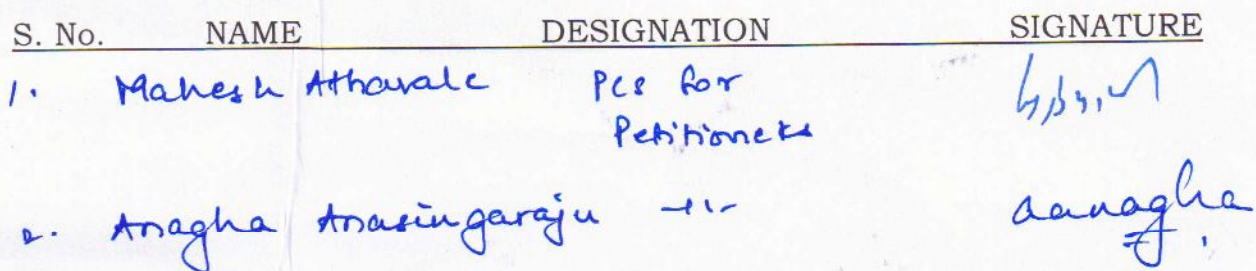 S. No. NAME DESIGNATION SIGNATURE
1. Mahesh Athavale PCS for
Petitioners
2. Anagha Anasingaraju -11-
aanagha